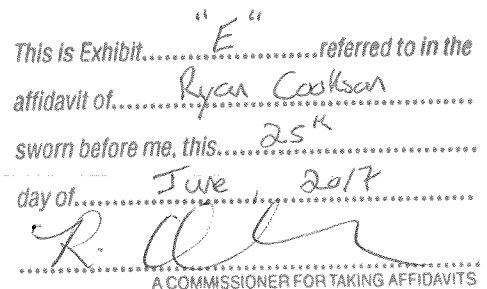 This is Exhibit "E" referred to in the
affidavit of Ryan Cookson
sworn before me, this 25th
day of June, 2017
R.
A COMMISSIONER FOR TAKING AFFIDAVITS